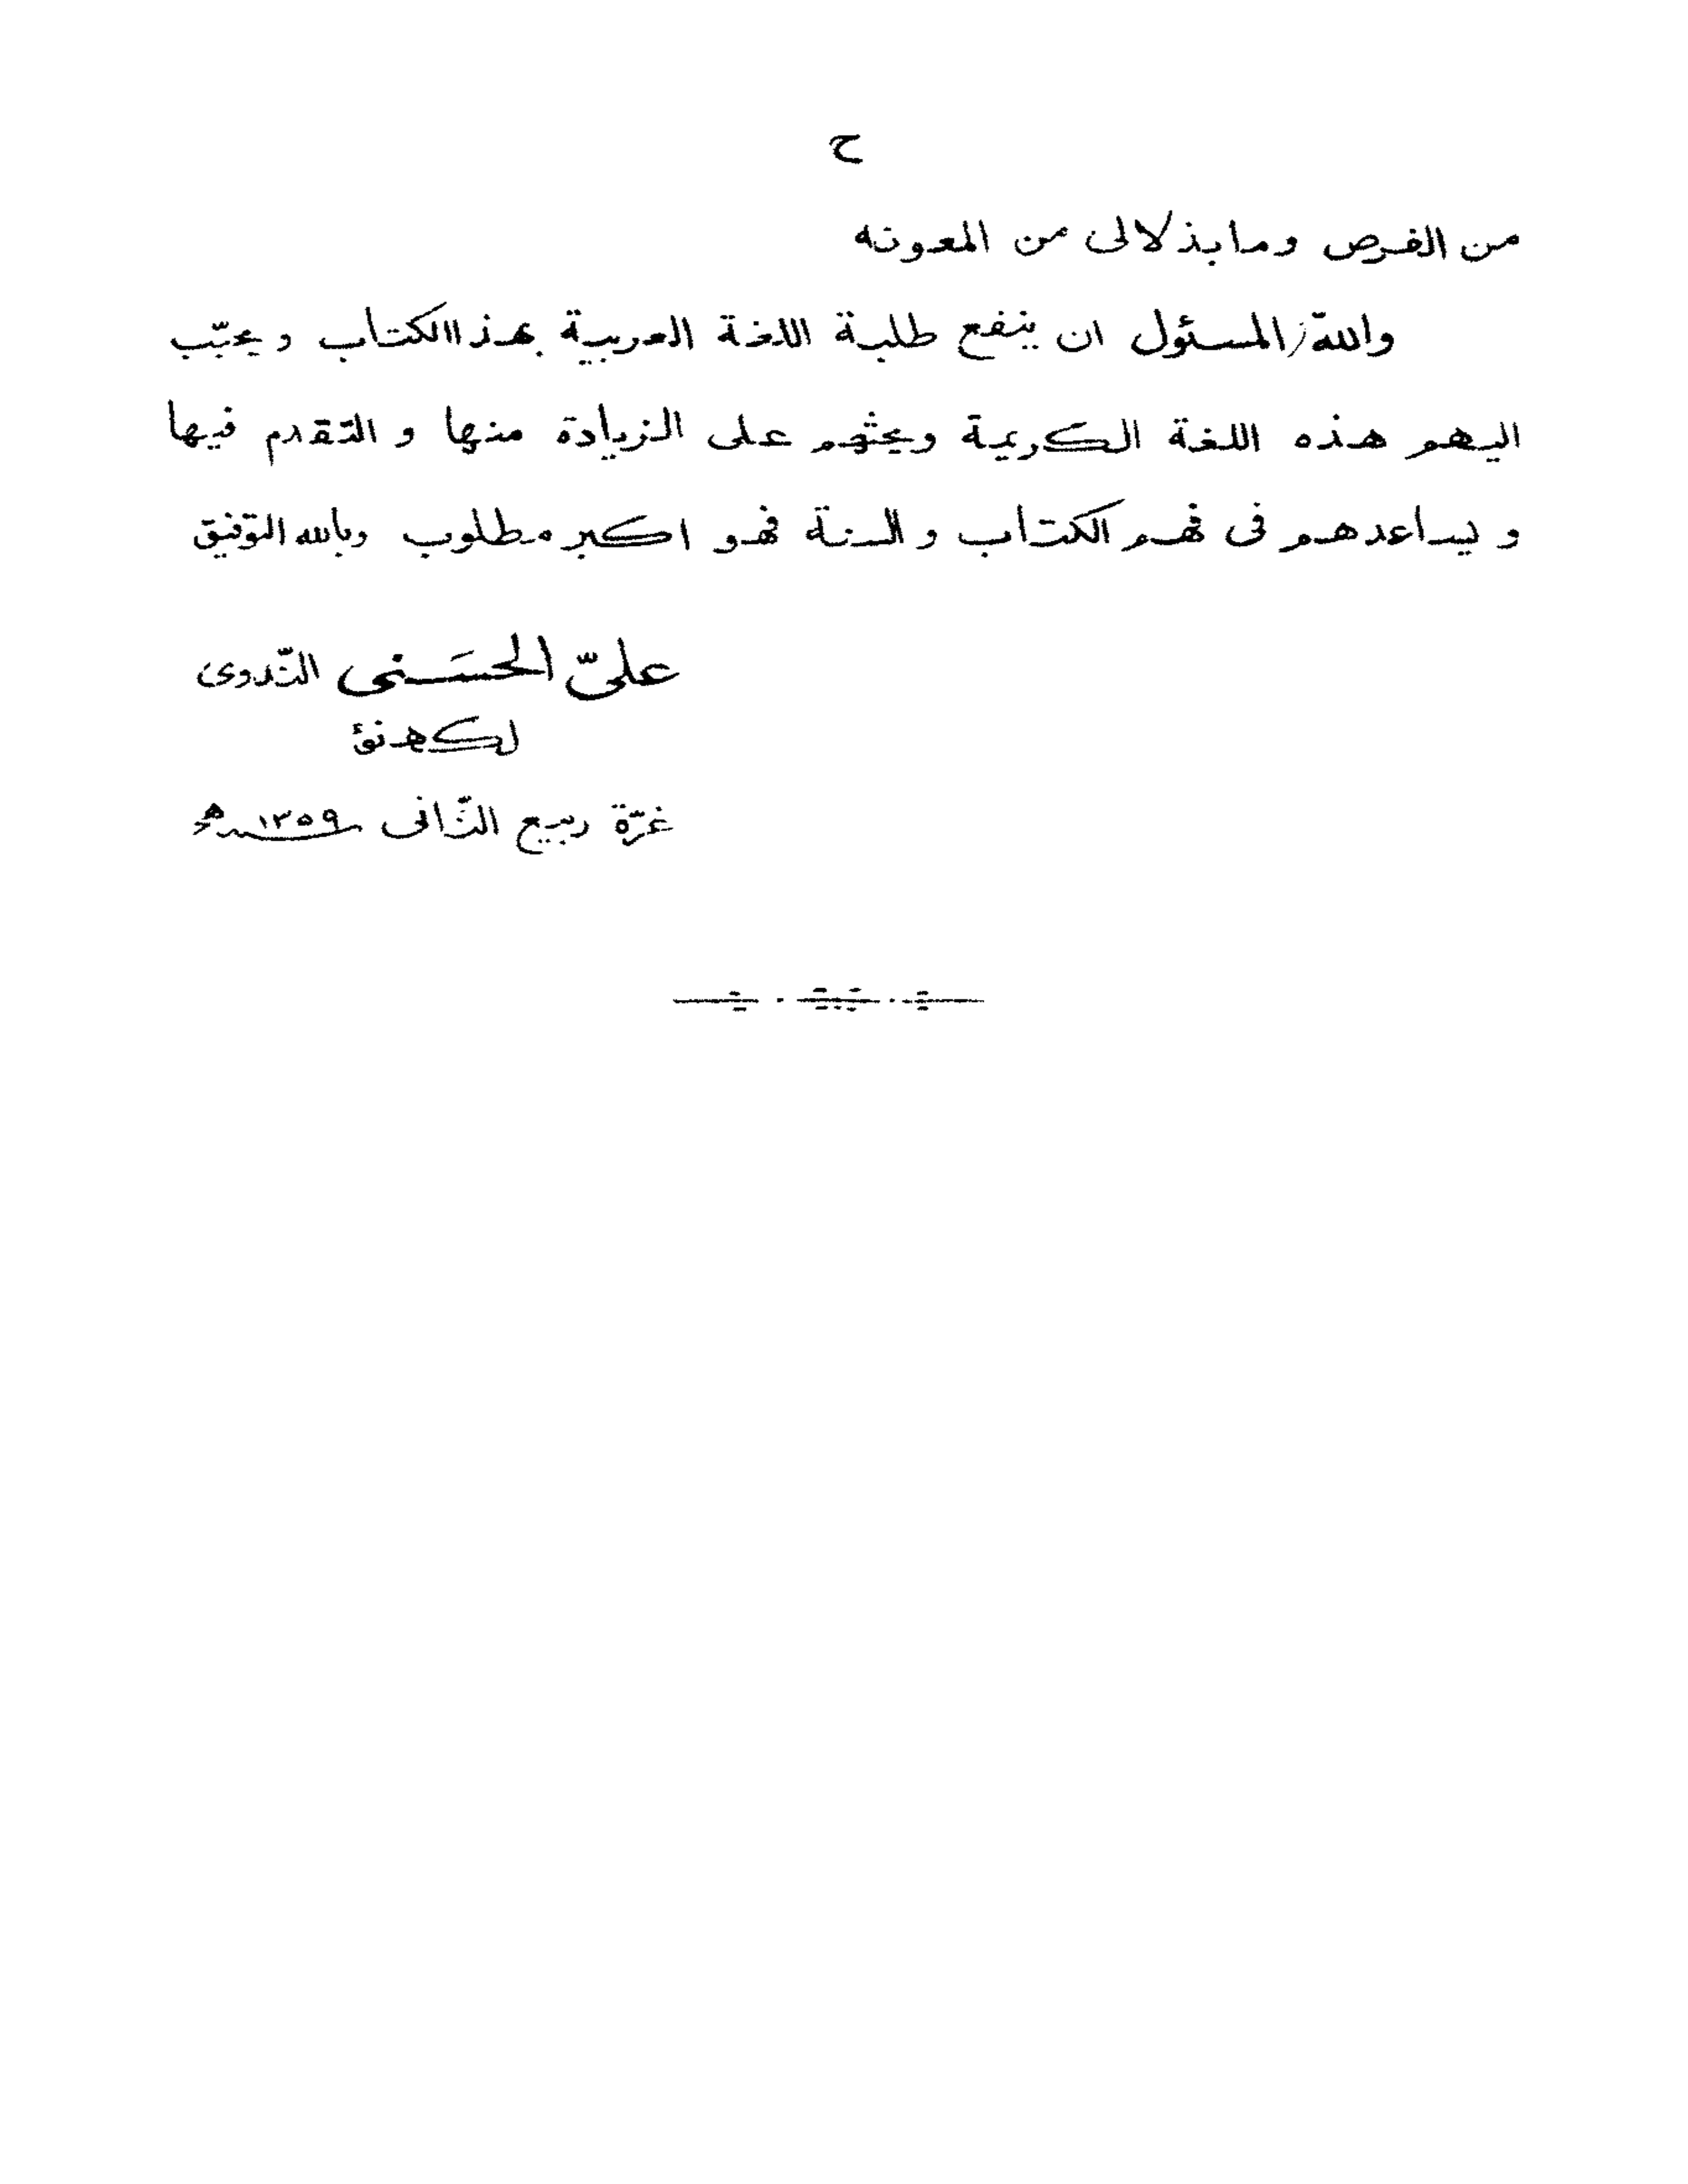 ح
من الفرص وما بذلا لى من المعونه
والله المسئول ان ينفع طلبة اللغة العربية بهذا الكتاب و يحبّب
اليهم هذه اللغة الكريمة ويحثهم على الزيادة منها و التقدم فيها
و يساعدهم فى فهم الكتاب و السنة فهو اكبر مطلوب وبالله التوفيق
علىّ الحسَنى النّدوى
لكهنؤ
غرّة ربيع الثّانى ١٣٥٩ھ